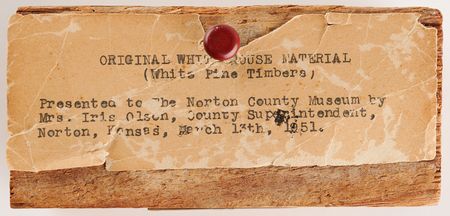 ORIGINAL WHITE HOUSE MATERIAL
(White Pine Timbers)
Presented to The Norton County Museum by
Mrs. Iris Olson, County Superintendent,
Norton, Kansas, March 13th, 1951.